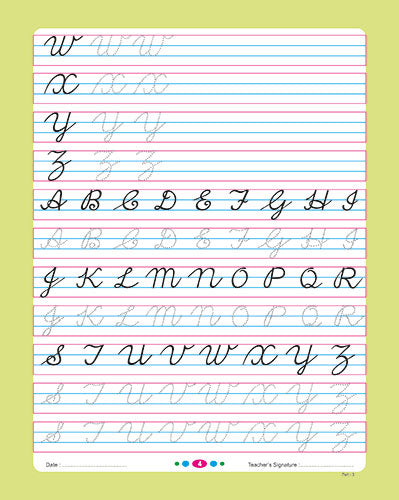 W W W
X X X
Y Y Y
Z Z Z
A B C D E F G H I
A B C D E F G H I
J K L M N O P Q R
J K L M N O P Q R
S T U V W X Y Z
S T U V W X Y Z
S T U V W X Y Z
Date : 4 Teacher's Signature :